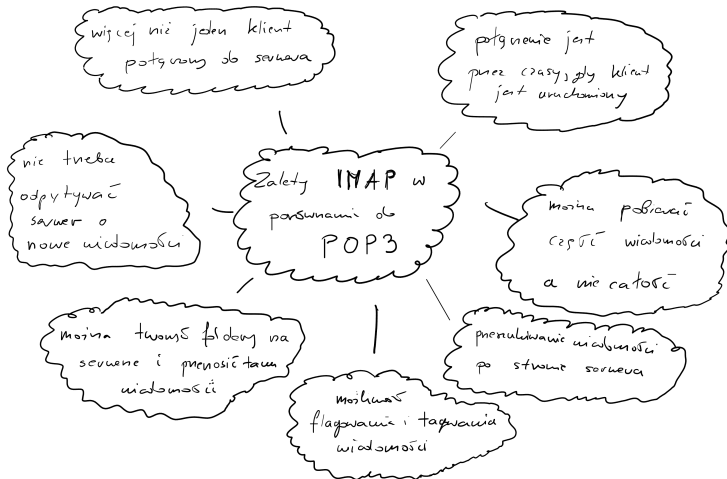 więcej niż jeden klient
połączony do serwera
połączenie jest
przez czas, gdy klient
jest uruchomiony
nie trzeba
odpytywać
serwer o
nowe wiadomości
Zalety IMAP w
porównaniu do
POP3
można pobierać
część wiadomości
a nie całość
można tworzyć foldery na
serwerze i przenosić tam
wiadomości
przeszukiwanie wiadomości
po stronie serwera
możliwość
flagowania i tagowania
wiadomości